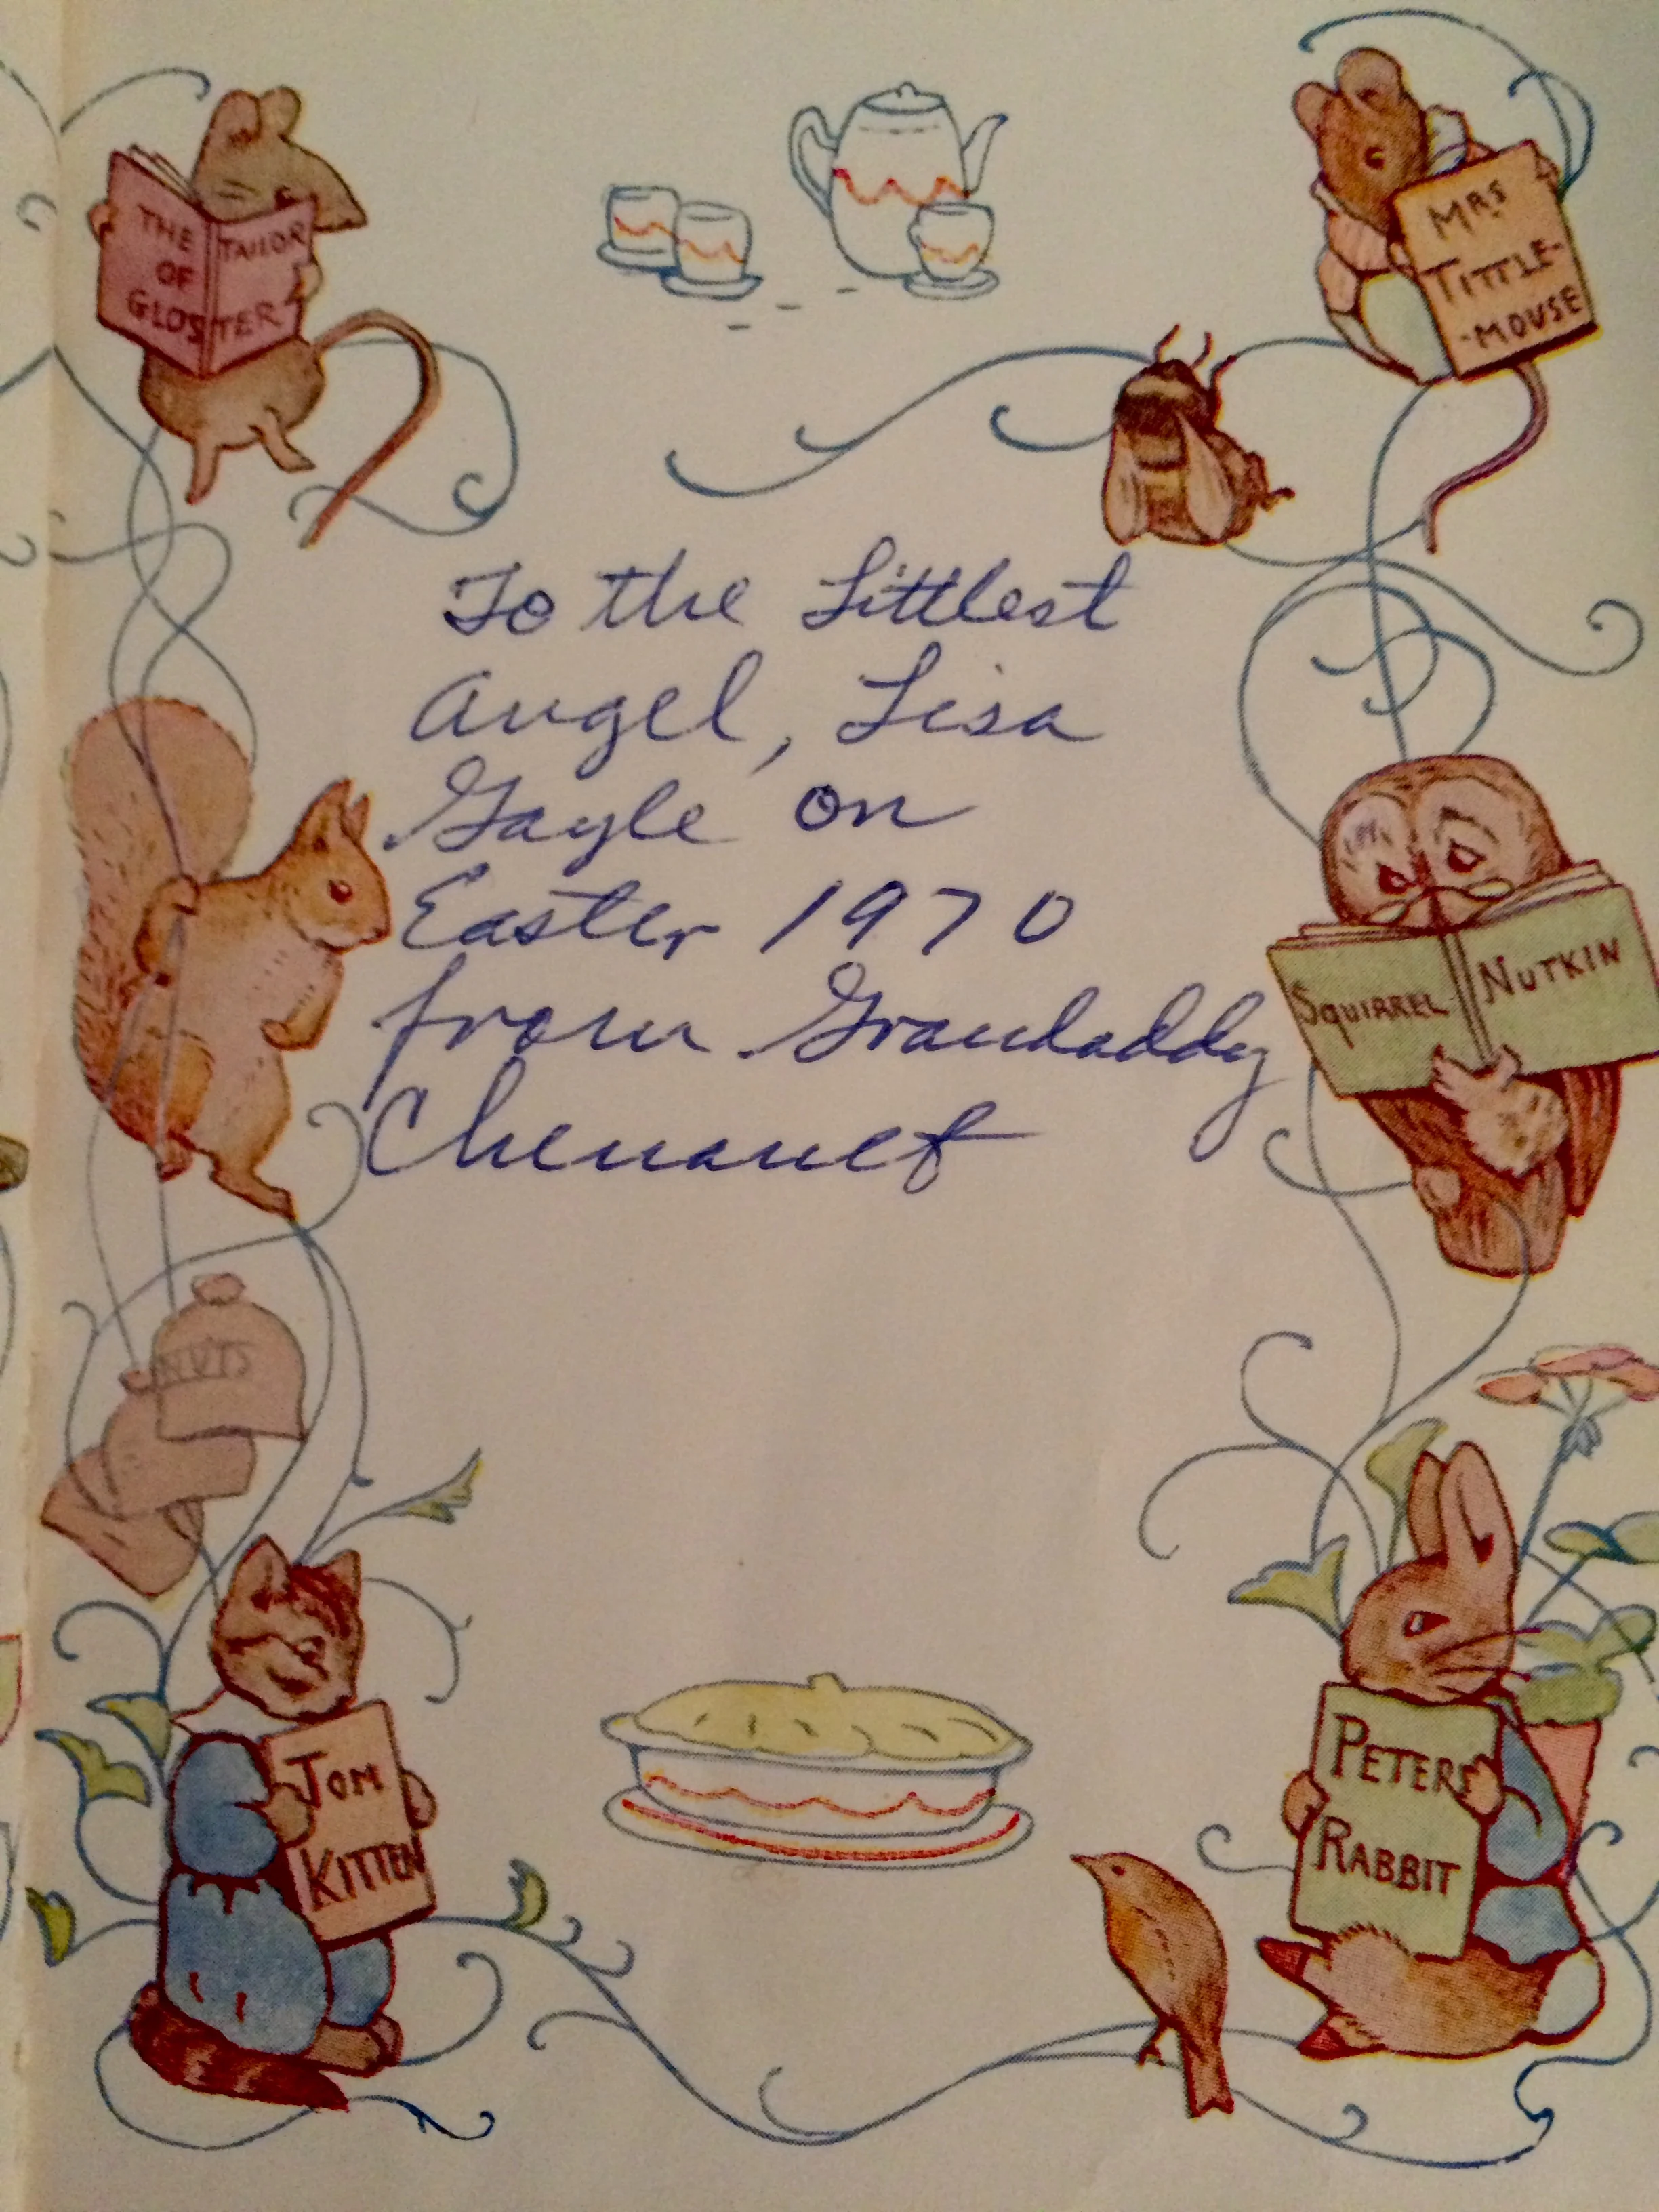 THE TAILOR
OF
GLOSTER
MRS
TITTLE-
-MOUSE
To the Littlest
Angel, Lisa
Gayle on
Easter 1970
from Grandaddy
SQUIRREL NUTKIN
NUTS
TOM
KITTEN
PETER
RABBIT